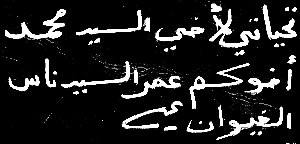 تحياتي لأخي السيد محمد
أخوكم عمر السيد ناس
الغيوان